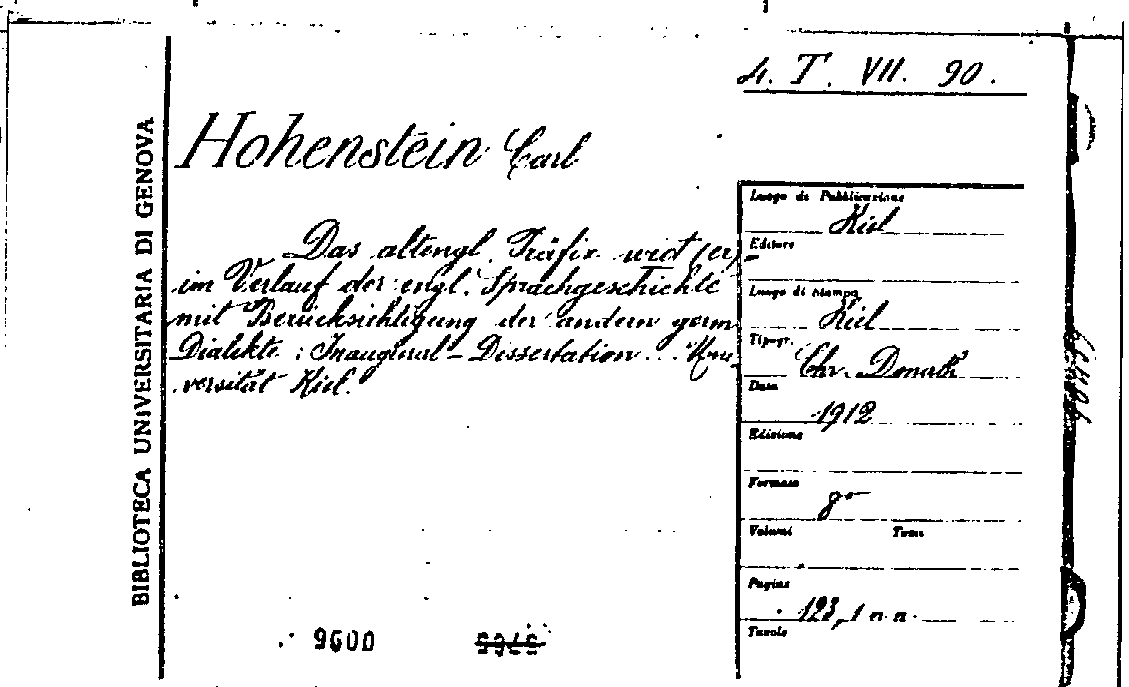 4. T. VII. 90.
BIBLIOTECA UNIVERSITARIA DI GENOVA
Hohenstein Carl
Das altengl. Präfix wid (er)-
im Verlauf der engl. Sprachgeschichte
mit Berücksichtigung der andern germ.
Dialekte : Inaugural-Dissertation ... Uni-
versität Kiel.
Luogo di Pubblicazione
Kiel
Editore
Luogo di stampa
Kiel
Tipogr.
Chr. Donath
Data
1912
Edizione
Formato
8°
Volumi Tomi
Pagine
123, 1 n. n.
Tavole
9600